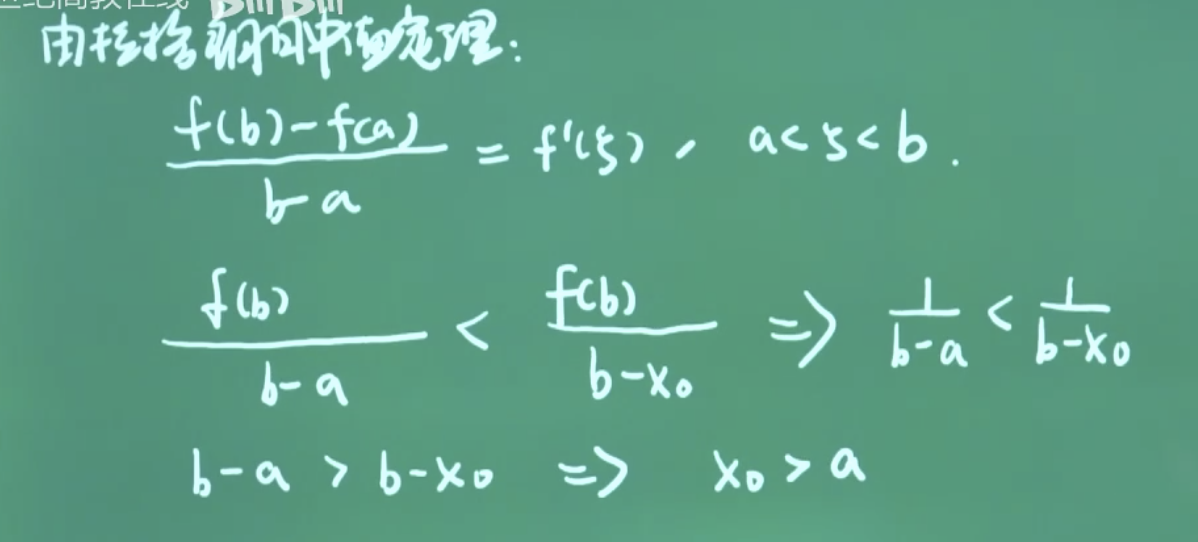 世纪高教在线 bilibili
由拉格朗日中值定理:
(f(b)-f(a))/(b-a) = f'(ξ), a<ξ<b.
f(b)/(b-a) < f(b)/(b-x₀) ⇒ 1/(b-a) < 1/(b-x₀)
b-a > b-x₀ ⇒ x₀ > a